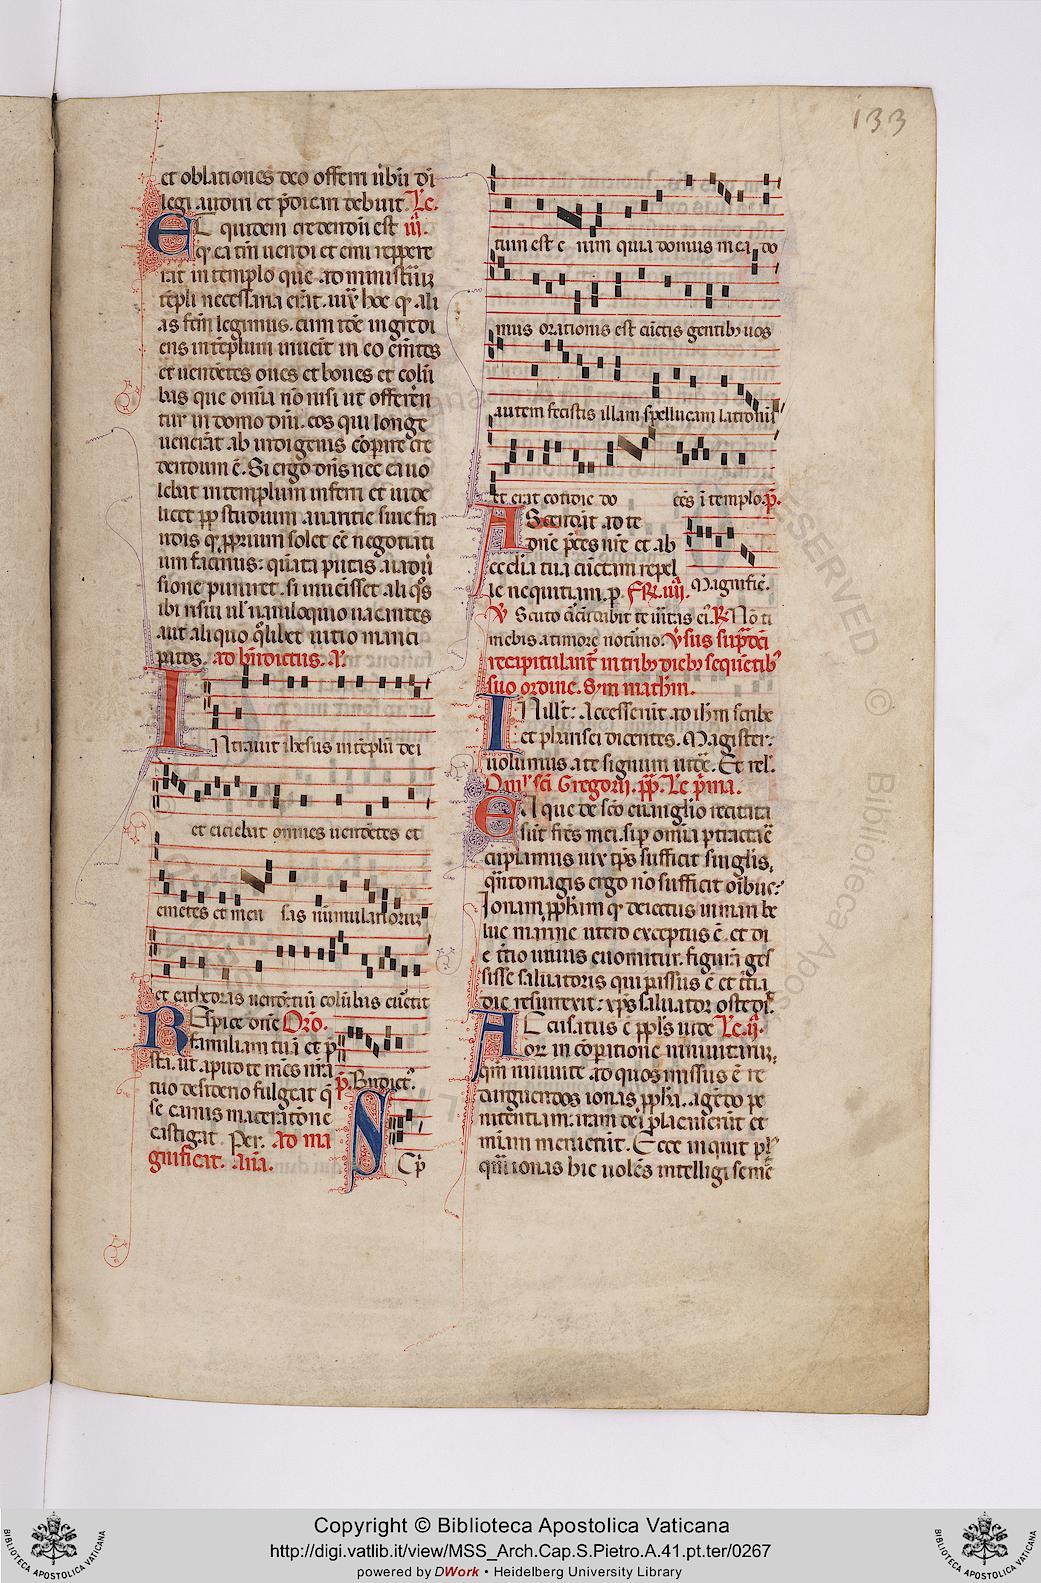 133
et oblationes deo offerri u̅bu̅ di̅
legi audiri et p̅dicari debuit. Le.
EL quidem credendu̅ est iii.
q̅ ea tm̅ uendi et emi reppere
rat in templo que ad ministeriu̅
te̅pli necessaria era̅t. iux̅ hoc q̅ ali
as fc̅m legimus. cum ide̅ ingredi
ens in te̅plum inueit in eo eme̅tes
et uende̅tes oues et boues et colu̅
bas que om̅ia no̅ nisi ut offere̅n
tur in domo dn̅i. eos qui longe
uenera̅t ab indigenis co̅parare cre
dendum e̅. Si ergo dn̅s nec ea uo
lebat in templum inferri et uide
licet pp̅ studium auaritie siue frau
dis q̅ pp̅rium solet ee̅ negotiati
um facinus: qua̅ta putas aiaduer
sione puniret. si inueisset aliq̅s
ibi risui ul̅ uaniloquio uaca̅ntes
aut aliquo q̅libet uitio manci
patos. ad bn̅dictus. a̅.
INtrauit ihesus in te̅plu̅ dei
et eiciebat omnes uende̅tes et
emetes et men sas nu̅mulario̅rum
et cathedras uende̅tiu̅ colu̅bas eu̅ertit
REspice dn̅e Or̅o.
familiam tua̅ et p̅
sta. ut apud te me̅s nr̅a
tuo desiderio fulgeat q̅
se carnis maceratio̅ne
castigat. Per. ad ma
gnificat. an̅a.
p̅. Bn̅dict̅.
SCp̅
tum est e nim quia domus mea do
mus orationis est cu̅ctis gentib; uos
autem fecistis illam speluncam latronu̅
et erat cotidie do ce̅s i̅ templo. p̅.
AScendat ad te
dn̅e p̅ces nr̅e et ab
ecclia tua cu̅ctam repel
le nequitiam. p. Fr̅. iiii. Magnific̅.
V̅ Scuto ci̅cu̅dabit te u̅itas ei̅. R̅ No̅ ti
mebis a timore noturno. Vsus sup̅dc̅i
recipitulant̅ in trib; dieb; seque̅tib;
suo ordine. Sm̅ math̅m.
IN ill̅ t̅: Accesserunt ad ih̅m scribe
et pharisei dicentes. Magister:
uolumus a te signum uide̅. Et rel̅.
Om̅l̅ sc̅i Gregorii. pp̅. Le p̅ma.
EA que de sc̅o euangelio recitata
su̅t fr̅es mei. si p̅ omia p̅tracta̅e
cupiamus uix tp̅s sufficit singlis,
qn̅to magis ergo no̅ sufficit oib; ue:
Ionam pp̅ham q̅ deiectus in mari be
lue marine utero exceptus e̅. et di
e t̅tio uiuus euomitur. figura̅ ges
sisse saluatoris qui passus e̅ et t̅tia
die resurrexit: xp̅s saluator oste̅dit.
AEcusatus e̅ pp̅ls iude Le. ii.
or̅ in co̅paratione niniuitaru̅;
qm̅ niniuite ad quos missus e̅ re
darguendos ionas pp̅ha. age̅do pe
nitentiam: iram dei placuerut et
mia̅m inuenerut. Ecce inquit pl̅
qm̅ ionas hic uole̅s intelligi seme̅
ESERVED © Biblioteca Apos
Copyright © Biblioteca Apostolica Vaticana
http://digi.vatlib.it/view/MSS_Arch.Cap.S.Pietro.A.41.pt.ter/0267
powered by DWork • Heidelberg University Library
BIBLIOTECA APOSTOLICA VATICANA
BIBLIOTECA APOSTOLICA VATICANA